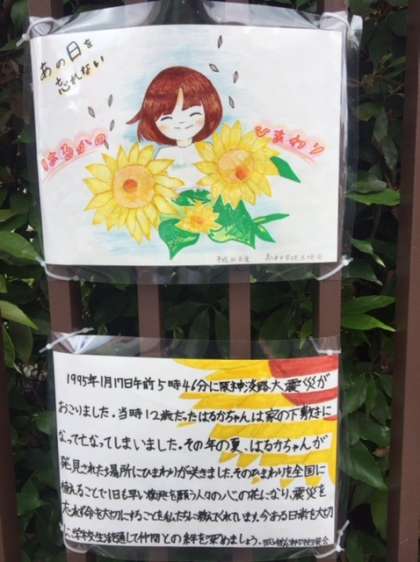 あの日を
忘れない
はるかの
ひまわり
1995年1月17日午前5時46分に阪神淡路大震災が
おこりました。当時12歳だったはるかちゃんは家の下敷きに
なって亡なってしまいました。その年の夏、はるかちゃんが
発見された場所にひまわりが咲きました。そのひまわりを全国に
植えることで1日も早い復興を願う人々の心の花になり、震災を
忘れず命を大切にすることを私たちに教えてくれています。今ある日常を大切
に、学校生活を通して仲間との絆を深めましょう。